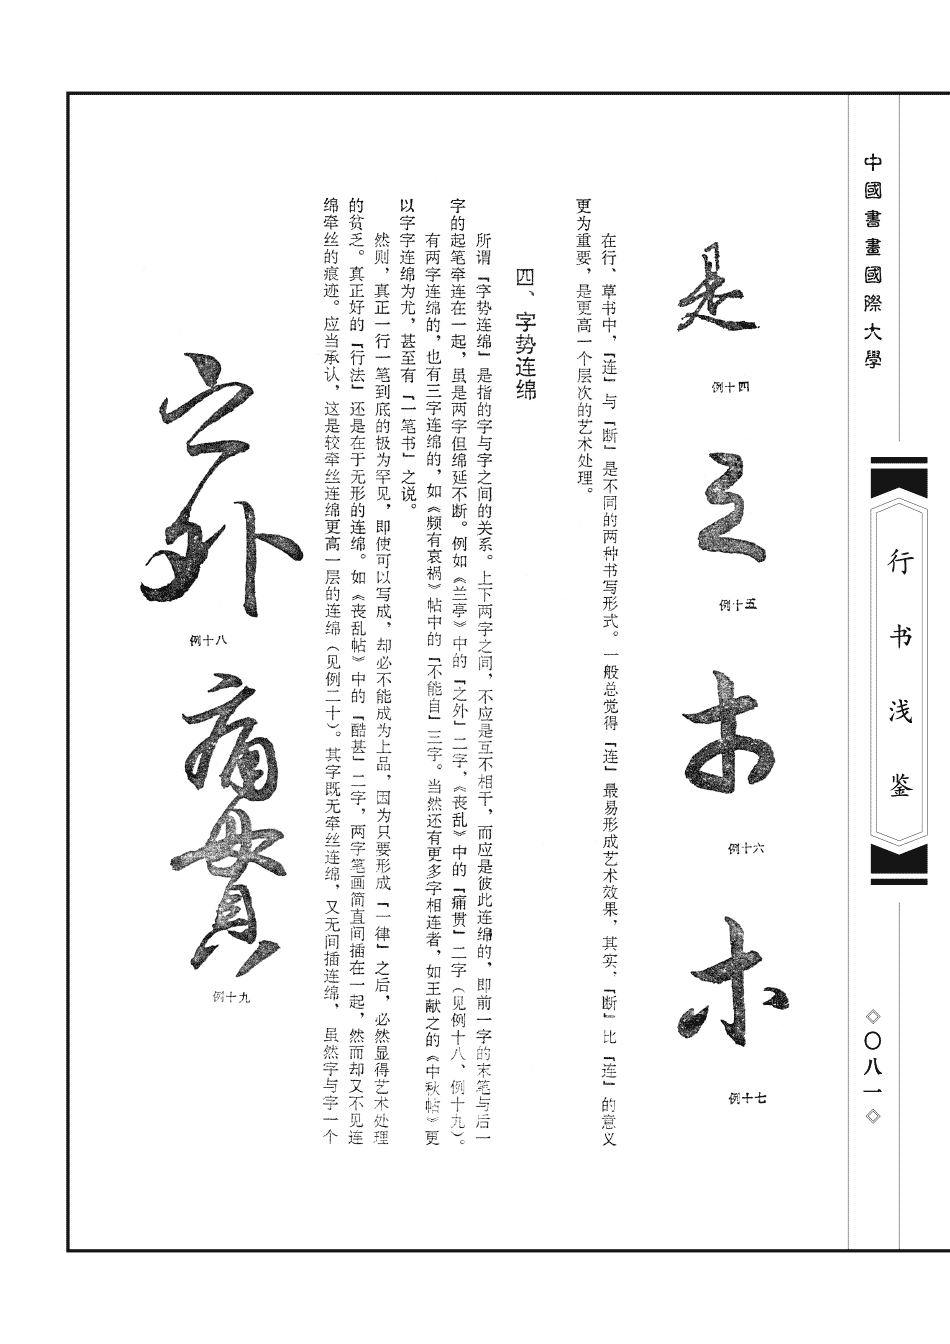 中國書畫國際大學
行书浅鉴
◇〇八一◇
是
例十四
之
例十五
木
例十六
木
例十七
在行、草书中，「连」与「断」是不同的两种书写形式。一般总觉得「连」最易形成艺术效果，其实，「断」比「连」的意义
更为重要，是更高一个层次的艺术处理。
四、字势连绵
所谓「字势连绵」是指的字与字之间的关系。上下两字之间，不应是互不相干，而应是彼此连绵的，即前一字的末笔与后一
字的起笔牵连在一起，虽是两字但绵延不断。例如《兰亭》中的「之外」二字，《丧乱》中的「痛贯」二字（见例十八、例十九）。
有两字连绵的，也有三字连绵的，如《频有哀祸》帖中的「不能自」三字。当然还有更多字相连者，如王献之的《中秋帖》更
以字字连绵为尤，甚至有「一笔书」之说。
然则，真正一行一笔到底的极为罕见，即使可以写成，却必不能成为上品，因为只要形成「一律」之后，必然显得艺术处理
的贫乏。真正好的「行法」还是在于无形的连绵。如《丧乱帖》中的「酷甚」二字，两字笔画简直间插在一起，然而却又不见连
绵牵丝的痕迹。应当承认，这是较牵丝连绵更高一层的连绵（见例二十）。其字既无牵丝连绵，又无间插连绵，虽然字与字一个
之外
例十八
痛贯
例十九